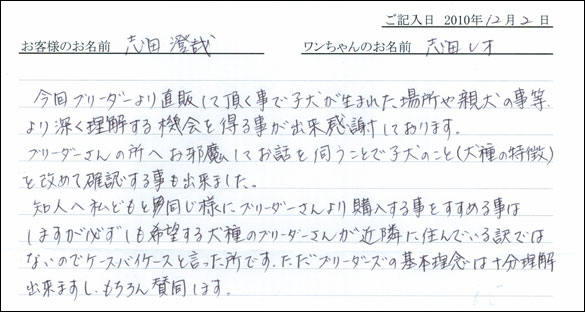 ご記入日 2010年12月2日
お客様のお名前 志田 澄哉 ワンちゃんのお名前 志田レオ
今回ブリーダーより直販して頂く事で子犬が生まれた場所や親犬の事等、
より深く理解する機会を得る事が出来感謝しております。
ブリーダーさんの所へお邪魔してお話を伺うことで子犬のこと(犬種の特徴)
を改めて確認する事も出来ました。
知人へ私どもと同じ様にブリーダーさんより購入する事をすすめる事は
しますが必ずしも希望する犬種のブリーダーさんが近隣に住んでいる訳では
ないのでケースバイケースと言った所です。ただブリーダーズの基本理念は十分理解
出来ますし、もちろん賛同します。